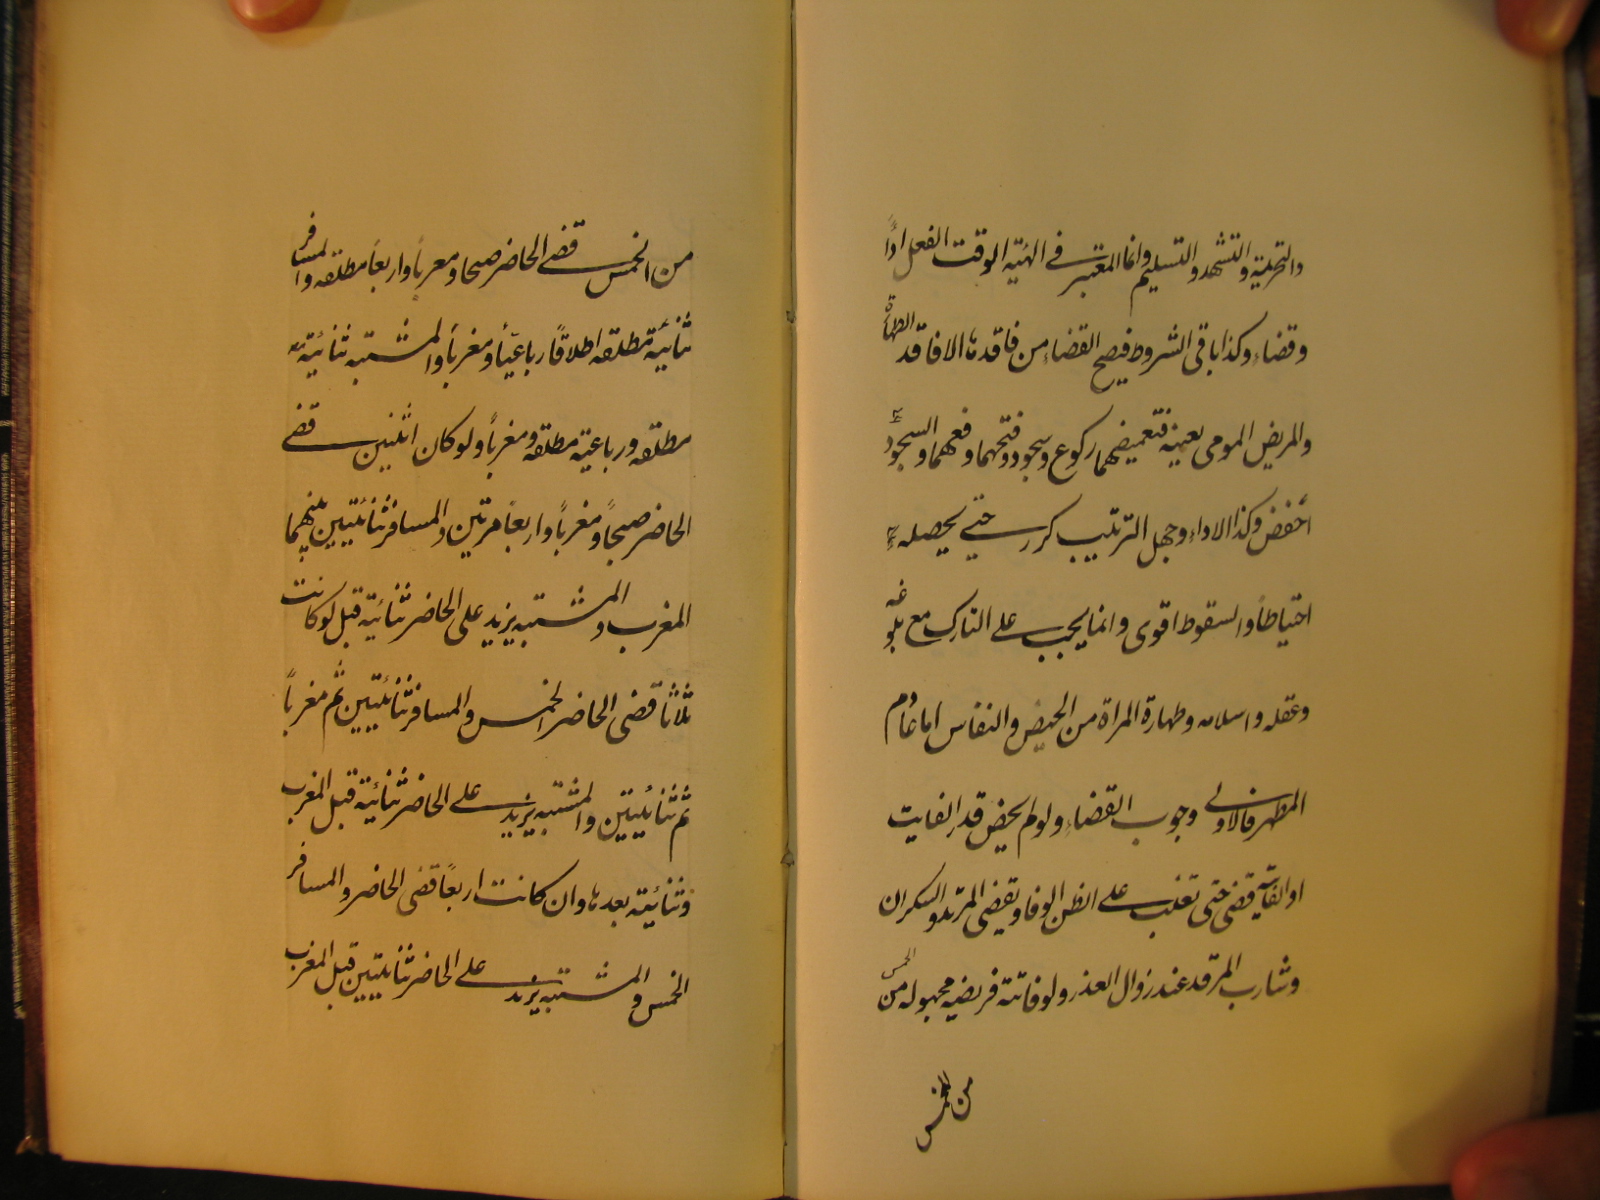 والتحريمة والتشهد والتسليم وانما المعتبر في الهيئة الوقت الفعل اداءً
وقضاء وكذا باقي الشروط فيصح القضاء من فاقدها الا فاقد الطهارة
والمريض المومى بعينه فتغميضهما ركوع وسجود وفتحهما رفعهما والسجود
اخفض وكذا الاداء وجهل الترتيب كرر حتى يحصله
احتياطاً والسقوط اقوى وانما يجب على التارك مع بلوغه
وعقله واسلامه وطهارة المراة من الحيض والنفاس اما عادم
المطهر فالاولى وجوب القضاء ولو لم يحض قدر الفايت
او الفايتة قضى حتى تغلب على الظن الوفا ويقضي المرتد والسكران
وشارب المرقد عند زوال العذر ولو فاتته فريضه مجهوله من الخمس
من الخمس
من الخمس قضى الحاضر صبحا ومغرباً واربعاً مطلقه والمسافر
ثنائية مطلقه اطلاقًا رباعيّاً ومغرباً والمشتبه ثنائية
مطلقه ورباعية مطلقه ومغرباً ولو كان اثنين قضى
الحاضر صبحاً ومغرباً واربعا مرتين والمسافر ثنائيتين بينهما
المغرب والمشتبه يزيد على الحاضر ثنائية قبل لو كانت
ثلاثا قضى الحاضر الخمس والمسافر ثنائيتين ثم مغرباً
ثم ثنائيتين والمشتبه يزيد على الحاضر ثنائية قبل المغرب
وثنائية بعدها وان كانت اربعاً قضى الحاضر والمسافر
الخمس والمشتبه يزيد على الحاضر ثنائيتين قبل المغرب